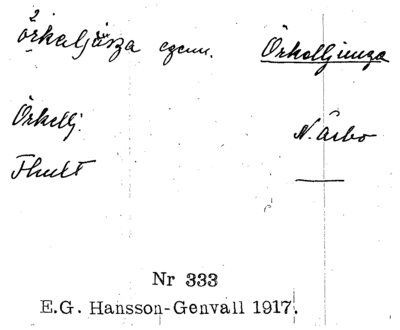 2
örkaljüŋa egenn. Örkelljunga
Örkellj. N. Åsbo
Fhult
Nr 333
E.G. Hansson-Genvall 1917.